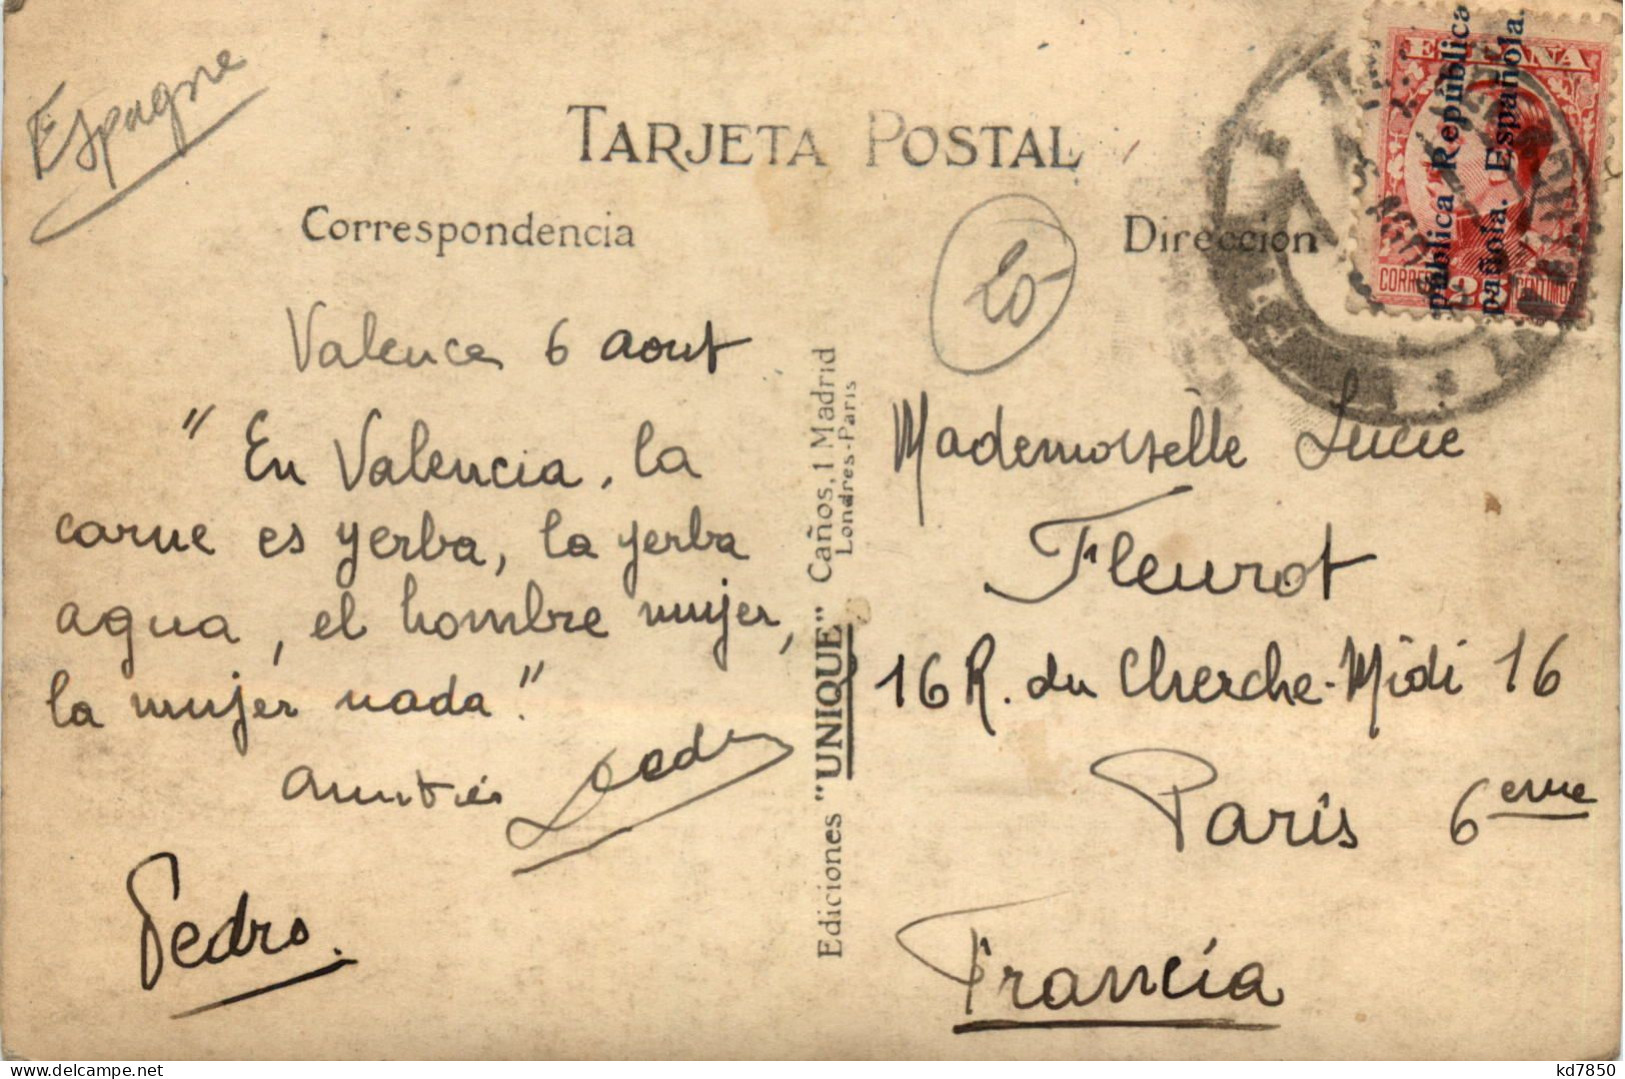 Espagne
TARJETA POSTAL
Correspondencia
Dirección
20
ESPAÑA
pública República
pañola. Española.
CORREOS 25 CENTIMOS
AGO
Valence 6 aout
"En Valencia, la
carne es yerba, la yerba
agua, el hombre mujer,
la mujer nada."
amitiés
Pedro.
Ediciones "UNIQUE" Caños, 1 Madrid
Londres-Paris
Mademoiselle Lucie
Fleurot
16 R. du Cherche-Midi 16
Paris 6eme
Francia
kd7850